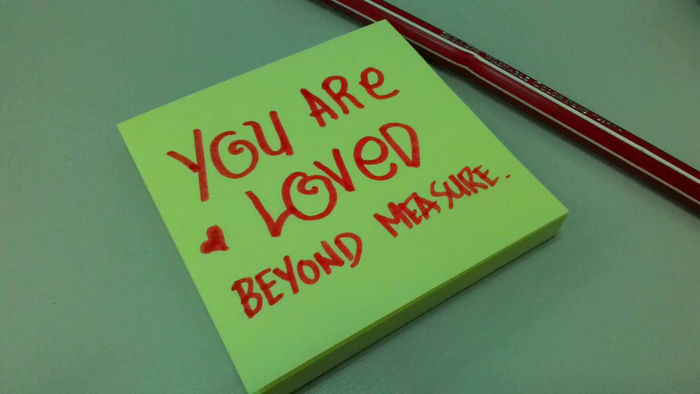 YOU ARe
LOVeD
BEYOND MEASURE.